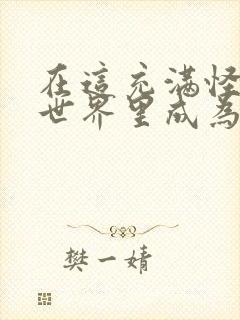 在這充滿怪
世界里成為
樊一婧